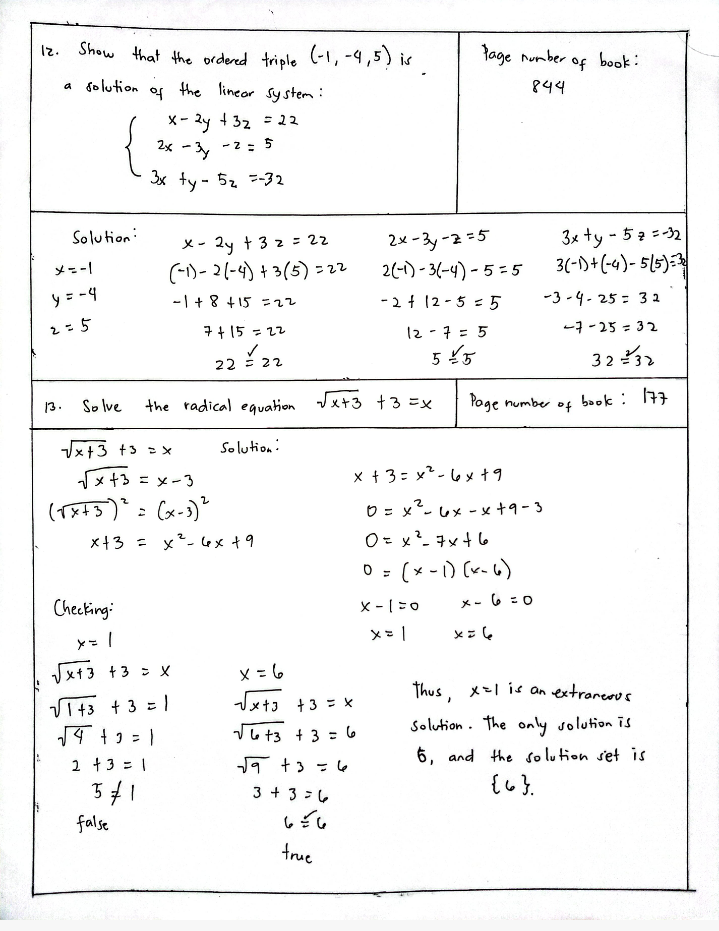 12. Show that the ordered triple (-1, -4, 5) is
a solution of the linear system:
x - 2y + 3z = 22
2x - 3y - z = 5
3x + y - 5z = -32
Page number of book:
844
Solution:
x = -1
y = -4
z = 5
x - 2y + 3z = 22
(-1) - 2(-4) + 3(5) = 22
-1 + 8 + 15 = 22
7 + 15 = 22
22 = 22
2x - 3y - z = 5
2(-1) - 3(-4) - 5 = 5
-2 + 12 - 5 = 5
12 - 7 = 5
5 = 5
3x + y - 5z = -32
3(-1) + (-4) - 5(5) = 32
-3 - 4 - 25 = 32
-7 - 25 = 32
32 = 32
13. Solve the radical equation √x+3 + 3 = x
Page number of book: 177
Solution:
√x+3 + 3 = x
√x+3 = x - 3
(√x+3)² = (x-3)²
x+3 = x² - 6x + 9
x + 3 = x² - 6x + 9
0 = x² - 6x - x + 9 - 3
0 = x² - 7x + 6
0 = (x - 1) (x - 6)
x - 1 = 0 x - 6 = 0
x = 1 x = 6
Checking:
x = 1
√x+3 + 3 = x
√1+3 + 3 = 1
√4 + 3 = 1
2 + 3 = 1
5 ≠ 1
false
x = 6
√x+3 + 3 = x
√6+3 + 3 = 6
√9 + 3 = 6
3 + 3 = 6
6 = 6
true
Thus, x=1 is an extraneous
solution. The only solution is
6, and the solution set is
{6}.